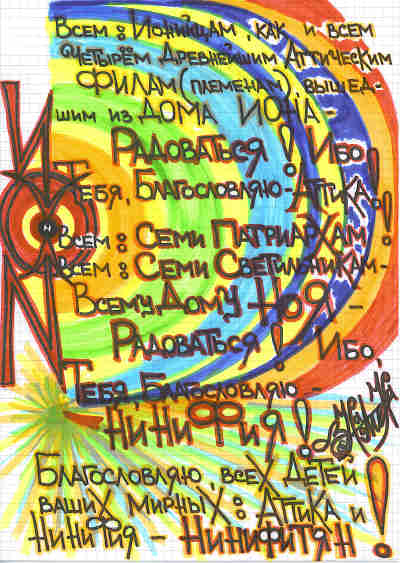 Всем: Ионийцам, как и всем
Четырём Древнейшим Аттическим
Филам (племенам), вышед-
шим из Дома Иона -
Радоваться! Ибо,
Тебя, Благословляю - Аттика!
Всем: Семи Патриархам!
Всем: Семи Светильникам -
Всему Дому Ноя -
Радоваться! Ибо,
Тебя, Благословляю -
Нинифия!
Благословляю, всех Детей
ваших Мирных: Аттика и
Нинифия - Нинифитян!
ИОН
Н